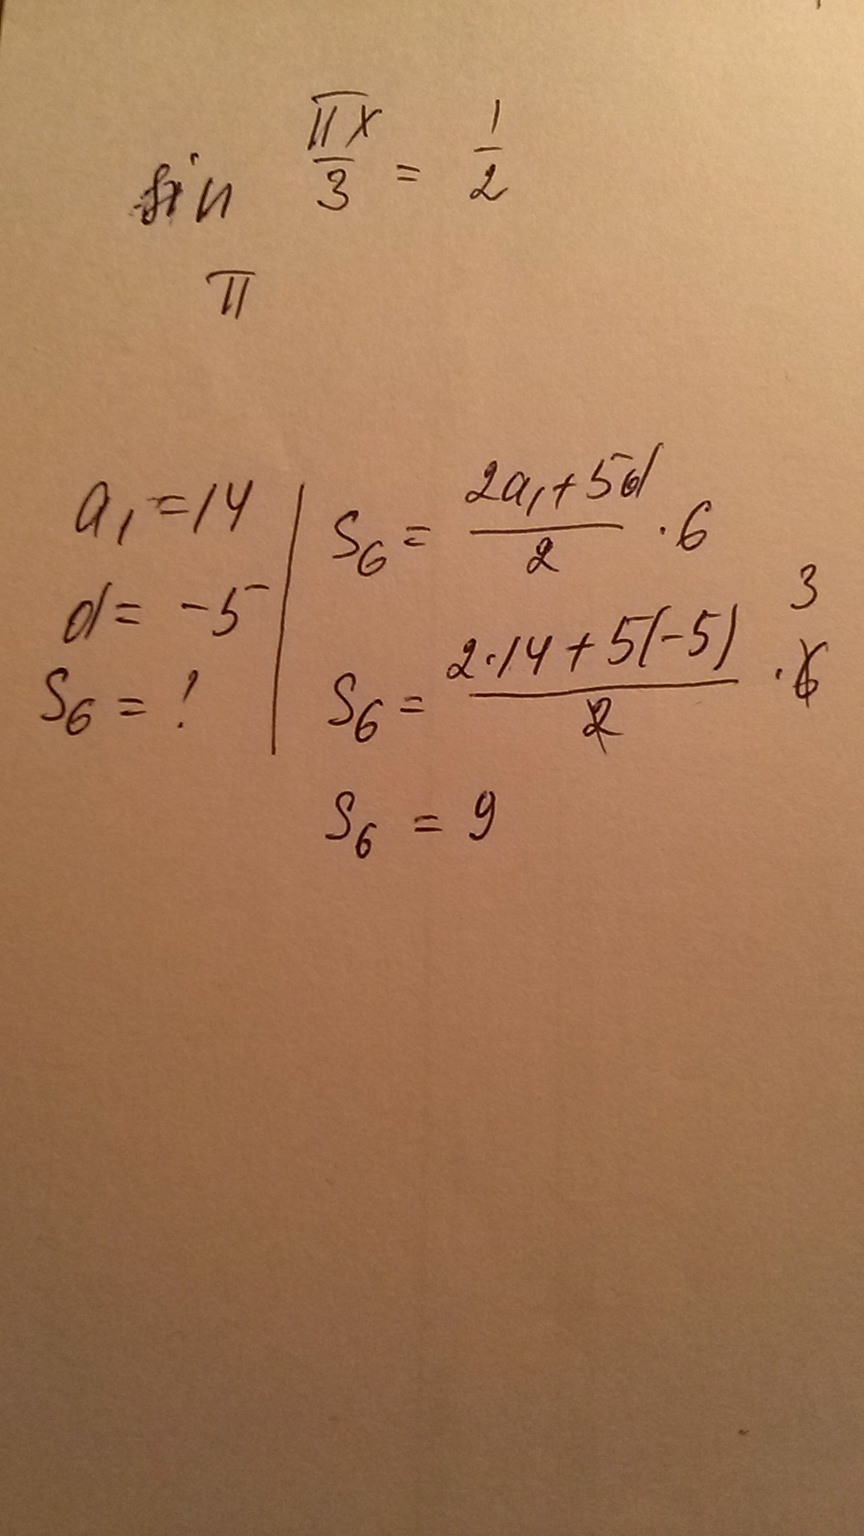 sin πx/3 = 1/2
π
a₁ = 14
d = -5
S₆ = ?
S₆ = (2a₁ + 5d)/2 · 6
S₆ = (2·14 + 5(-5))/2 · 6 3
S₆ = 9